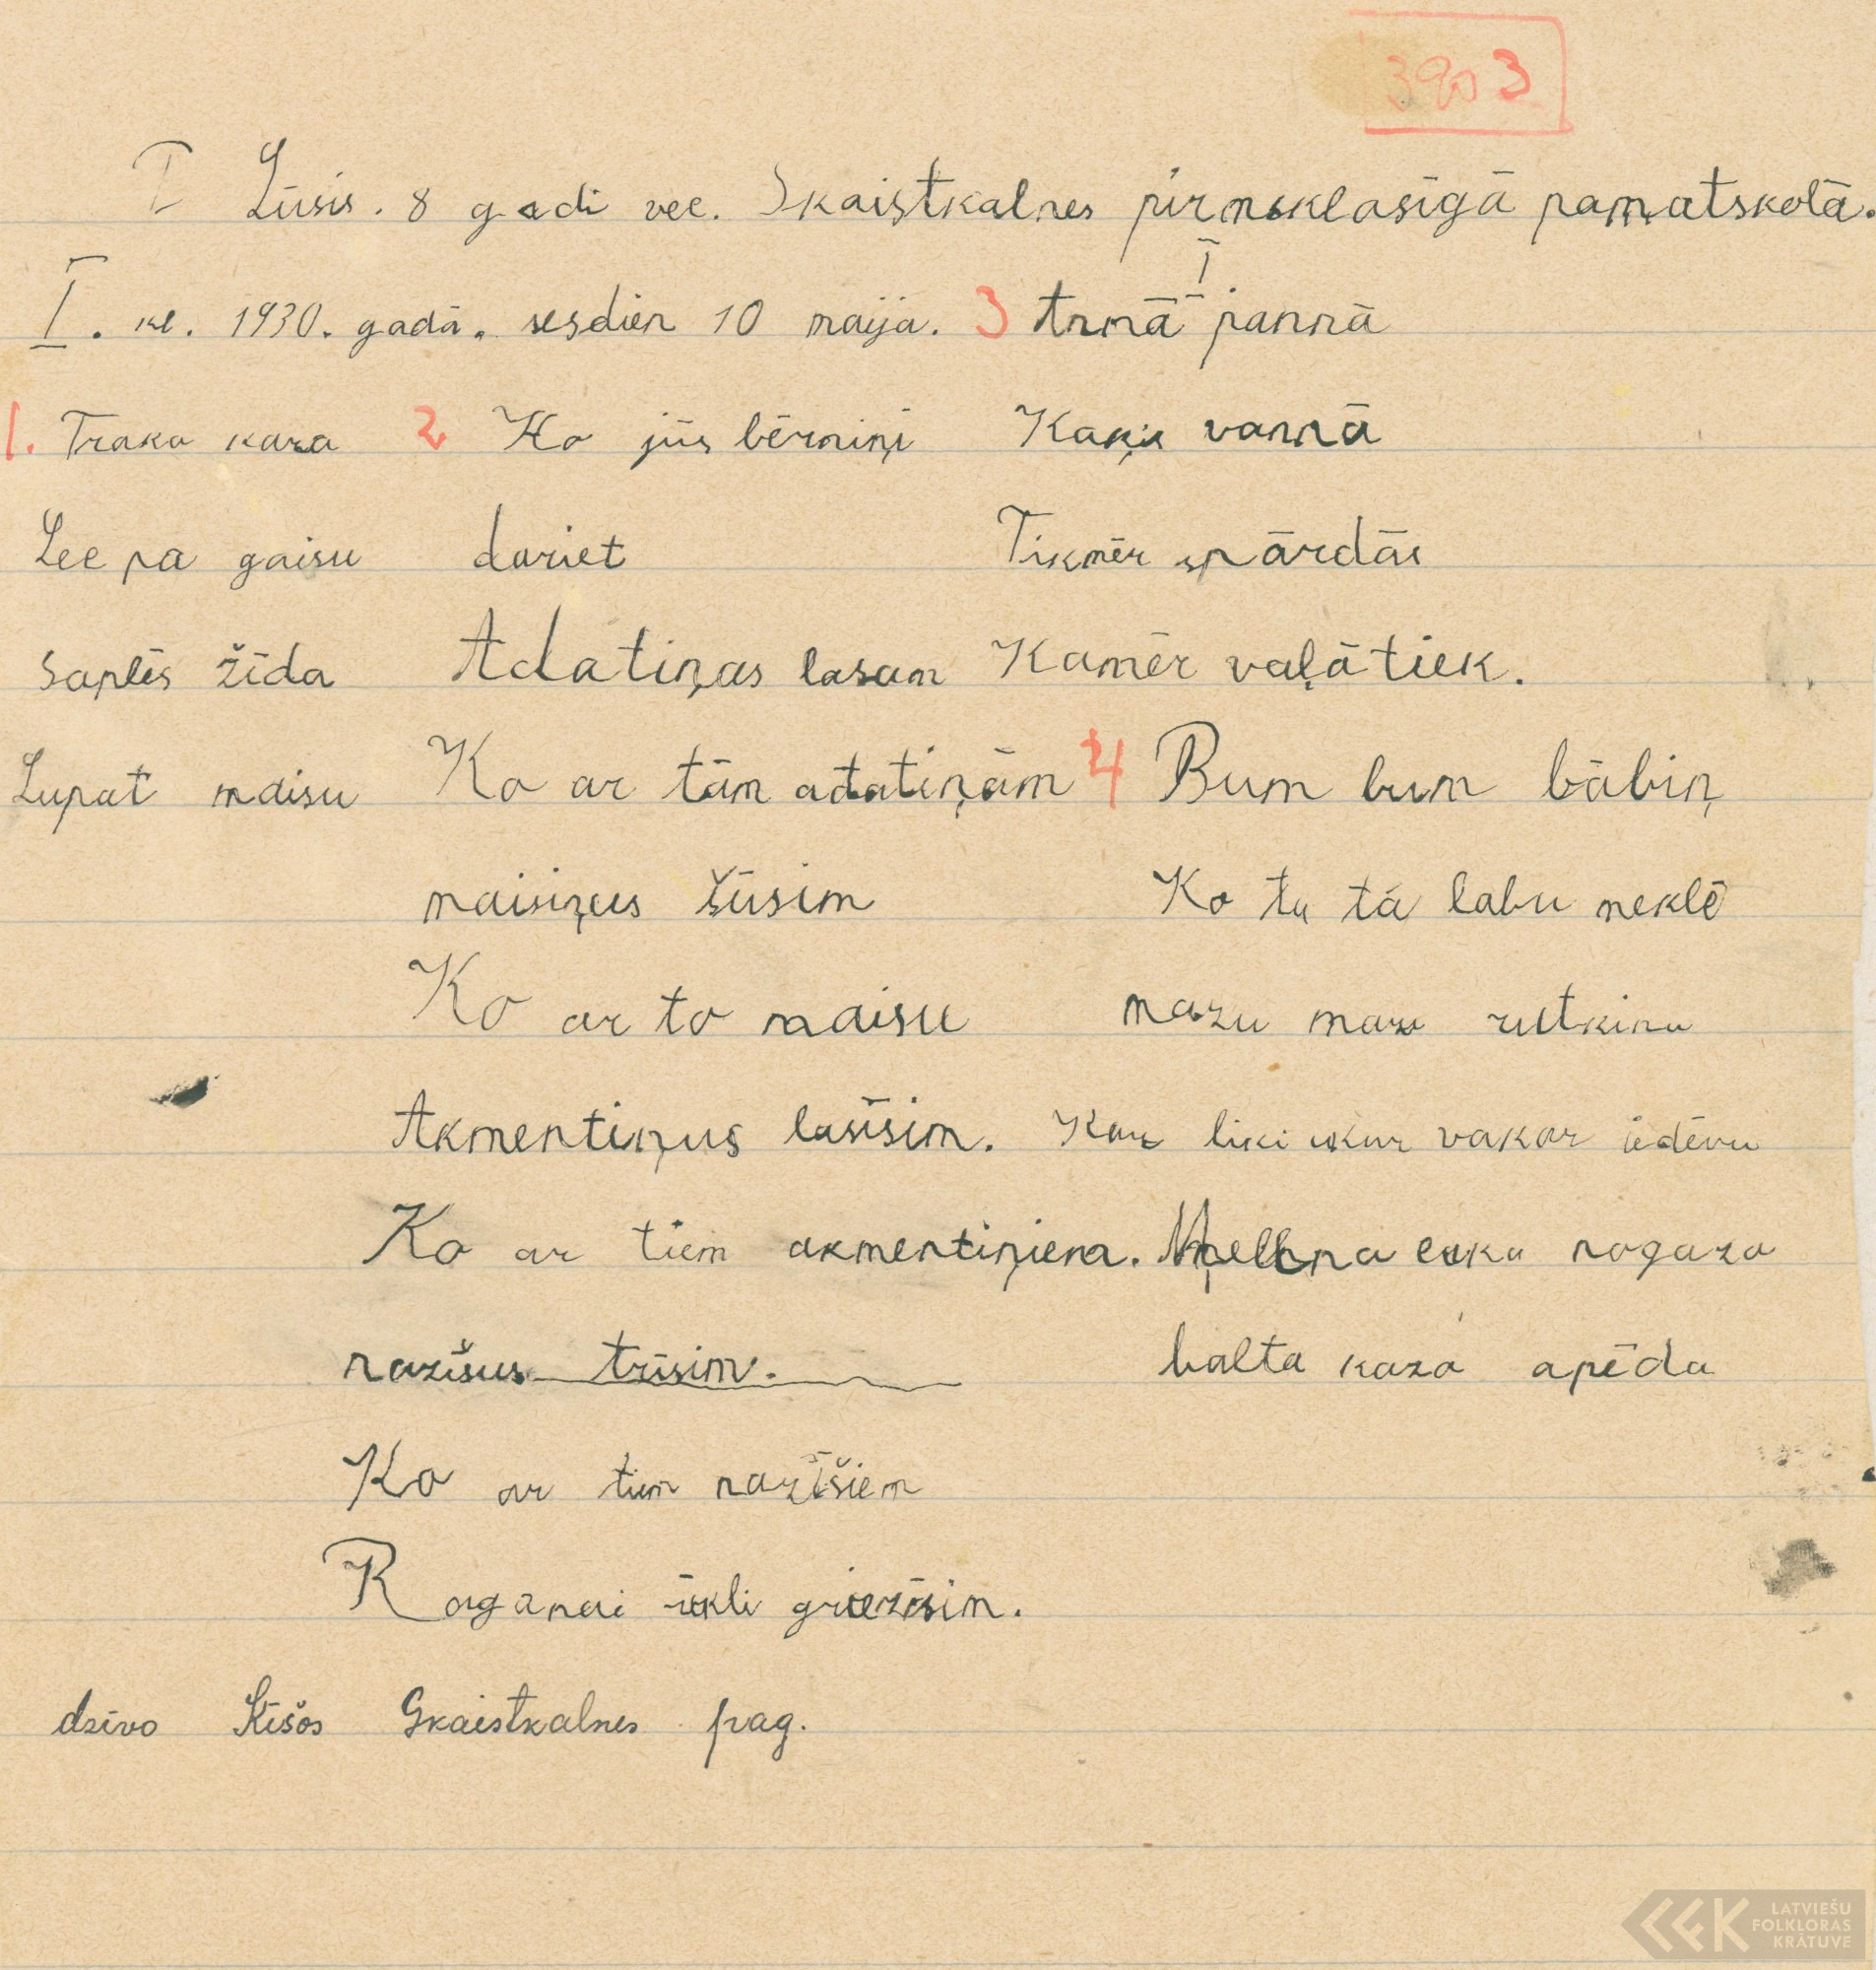 3903
I Lūsis. 8 gadi vec. Skaistkalnes pirmsklasīgā pamatskolā.
I. kl. 1930. gadā. sesdien 10 maija.
1. Traka kaza
Lec pa gaisu
saplēs žīda
Lupat maisu
2 Ko jūs bērniņi
dariet
Adatiņas lasam
Ko ar tām adatiņām
maisiņus šūsim
Ko ar to maisu
Akmentiņus lasīsim.
Ko ar tiem akmentiņiem.
nazīšus trīsim.
Ko ar tiem nazīšiem
Raganai rīkli griezīsim.
3 I
Annā pannā
Kaķis vannā
Tikmēr spārdās
Kamēr vaļā tiek.
4 Bum bum bābiņ
Ko tu tā labu neklē
mazu mazu rutkinu
Kur liki kur vakar iedēvu
Mellna cuka nogaza
balta kaza apēda
dzīvo Ķīšos Skaistkalnes pag.
LATVIEŠU
FOLKLORAS
KRĀTUVE